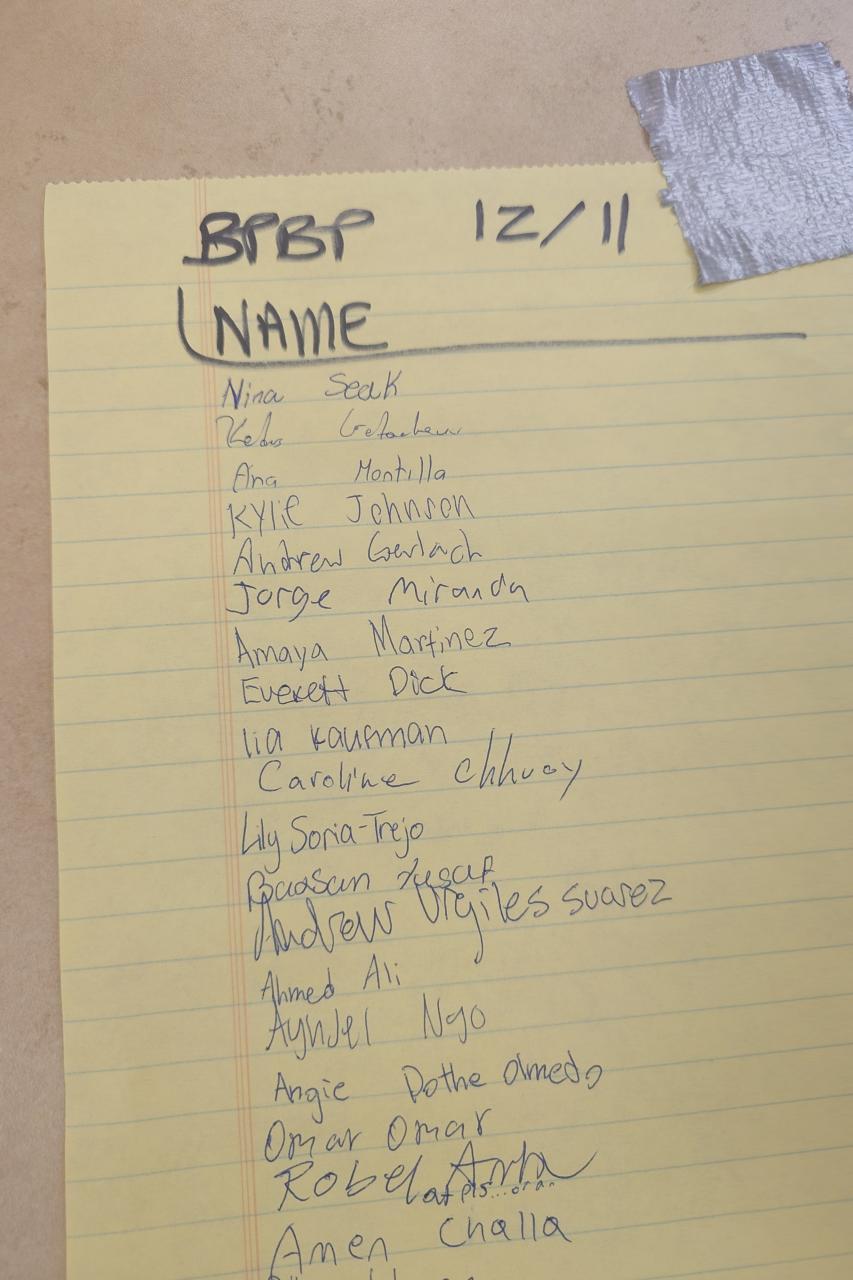 BPBP 12/11
NAME
Nina Seak
Ana Montilla
Kylie Johnson
Andrew Gerlach
Jorge Miranda
Amaya Martinez
Everett Dick
lia kaufman
Caroline Chhuoy
Lily Soria-Trejo
Yusuf
Andrew Virgiles suarez
Ahmed Ali
Ngo
Angie Dothe Olmedo
Omar Omar
Robel
Amen Challa